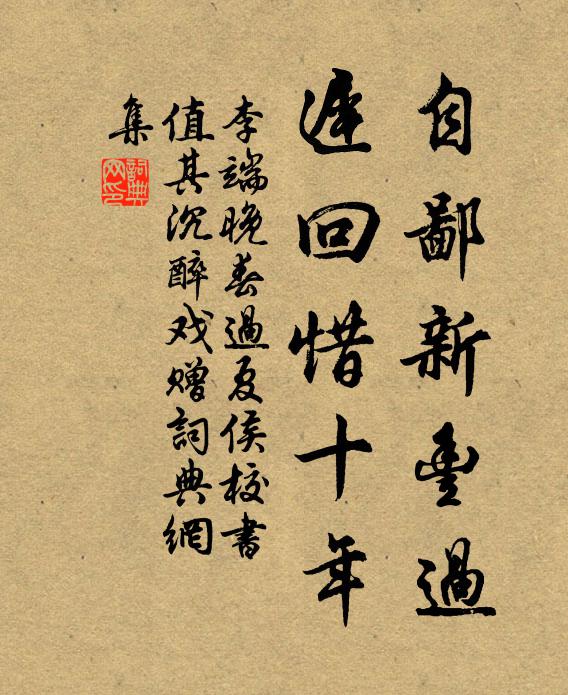 自鄙新豐過
遲回惜十年
李端晚春過夏侯校書
值其沉醉戏贈詞典網
集
詞典
网印